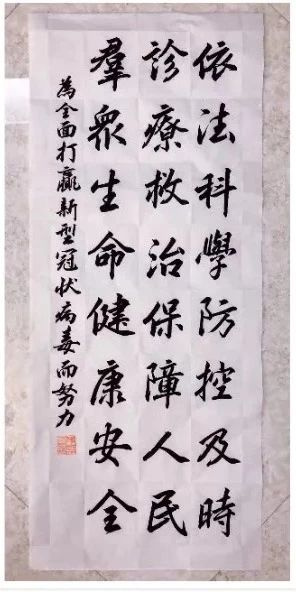 依法科學防控及時
診療救治保障人民
羣眾生命健康安全
為全面打贏新型冠状病毒而努力